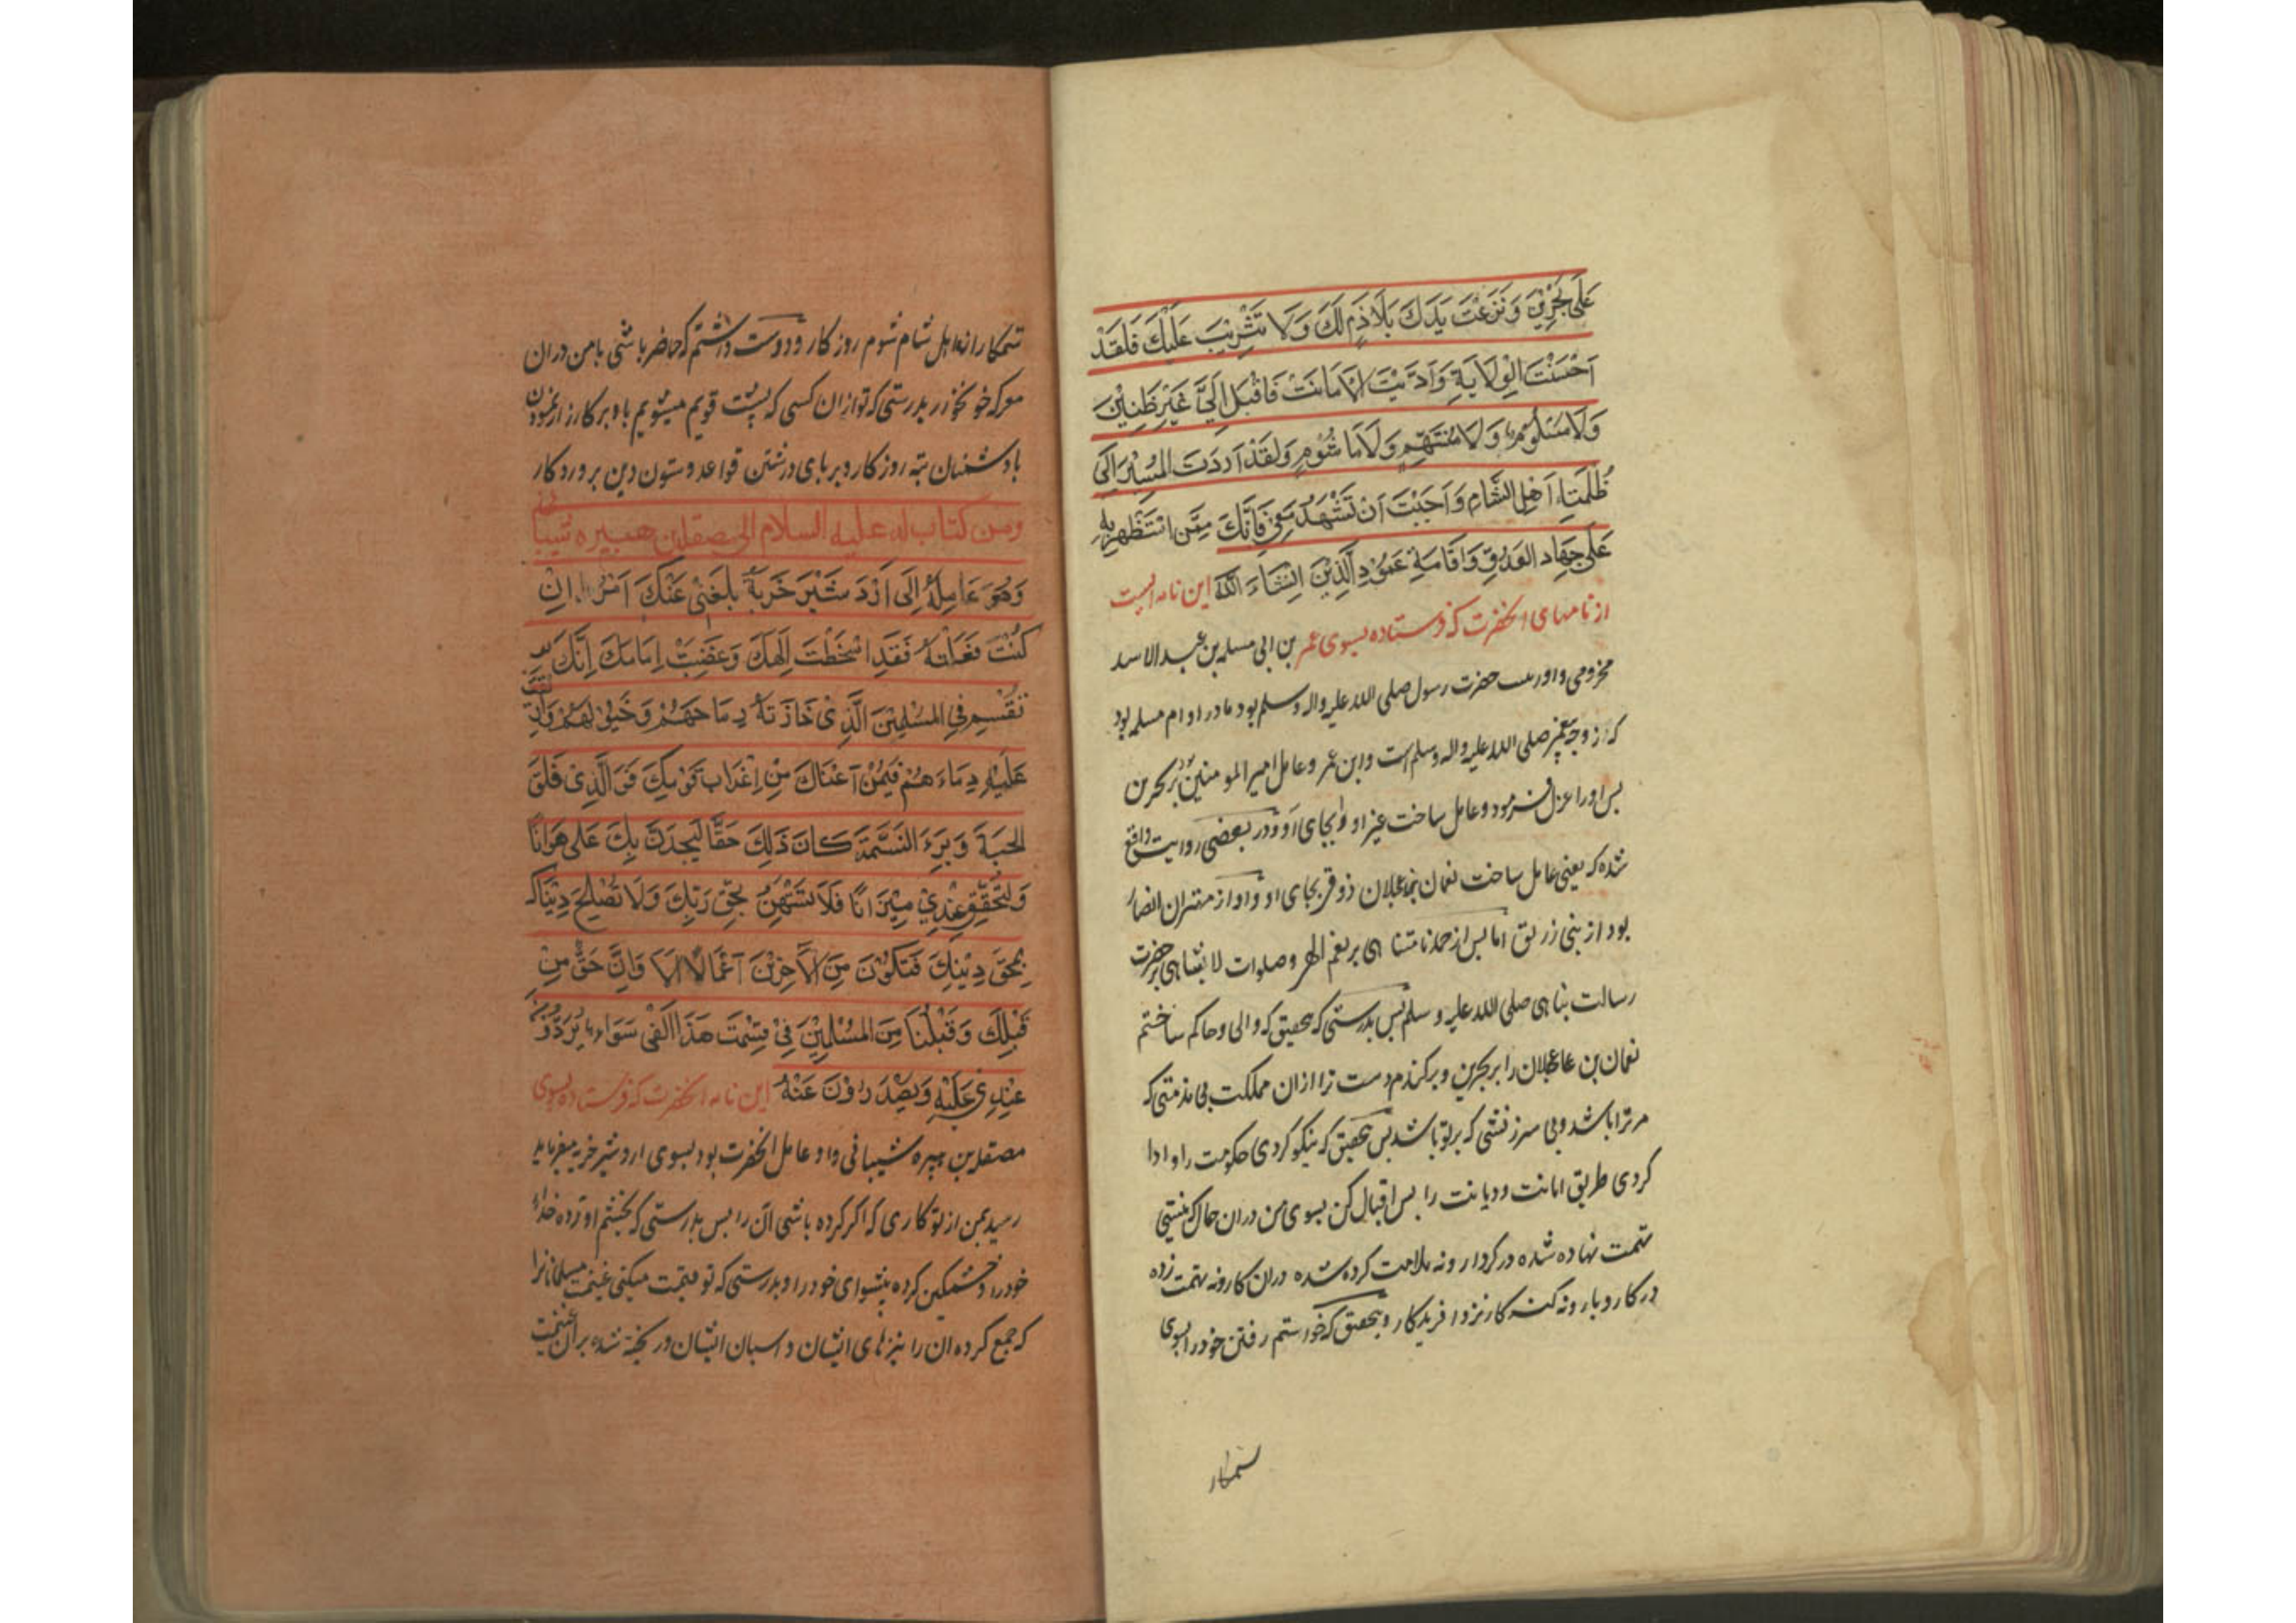 عَلَى بَحْرَيْنِ وَنَزَعْتُ يَدَكَ بِلَا ذَمٍّ لَكَ وَلَا تَثْرِيْبَ عَلَيْكَ فَلَقَدْ
اَحْسَنْتَ الْوِلَايَةِ وَاَدَّيْتَ الْاَمَانَتْ فَاَقْبِلْ اِلَيَّ غَيْرَ ظَنِيْنٍ
وَلَا مَلُوْمٍ وَلَا مُتَّهَمٍ وَلَا مَاثُوْمٍ وَلَقَدْ اَرَدْتُ الْمَسِيْرَ اِلَى
ظَلَمَةِ اَهْلِ الشَّامِ وَاَحْبَبْتُ اَنْ تَشْهَدَ مَعِيَ فَاِنَّكَ مِمَّنْ اسْتَظْهِرُ بِهِ
عَلَى جِهَادِ الْعَدُوِّ وَاِقَامَةِ عَمُوْدِ الدِّيْنِ اِنْشَاءَ اللّٰه این نامه ایست
از نامهای انحضرت که فرستاده بسوی عمر بن ابی مسلمه بن عبد الاسد
مخزومی و او ربیب حضرت رسول صلی الله علیه واله وسلم بود مادر او ام مسلمه بود
که زوجه پیغمبر صلی الله علیه واله وسلم است و ابن عمر و عامل امیر المومنین بود بر بحرین
پس او را عزل فرمود و عامل ساخت غیر او را بجای او و در بعضی روایت واقع
شده که یعنی عامل ساخت نعمان بن عجلان ذوقی بجای او و او از مهتران انصار
بود از بنی زریق اما پس از حمد نامتناهی بر نعم الهی و صلوات لا یتناهی بر حضرت
رسالت پناهی صلی الله علیه و سلم پس بدرستی که بتحقیق که والی و حاکم ساختم
نعمان بن عاعجلان را بر بحرین و برکندم دست ترا ازان مملکت بی مذمتی که
مر ترا باشد و بی سرزنشی که بر تو باشد پس بتحقیق که نیکو کردی حکومت را و ادا
کردی طریق امانت و دیانت را پس اقبال کن بسوی من دران حال که نیستی
تهمت نهاده شده در کردار و نه ملامت کرده شده دران کار و نه تهمت زده
در کار و بار و نه کنه کار نزد افریدکار و بتحقیق که خواستم رفتن خود را بسوی
ستمکار
ستمکاران اهل شام شوم روز کار و دوست داشتم که حاضر باشی با من دران
معرکه خونخوار بدرستی که تو ازان کسی که پشت قویم میشویم باو بر کارزار نمودن
با دشمنان تیه روز کار و بر پای داشتن قواعد و ستون دین پروردکار
ومن كتاب له عليه السلام الى مصقلة بن هبيره شيباني
وَهُوَ عَامِلُهُ اِلَى اَرْدَشِيْرَ خُرَّةَ بَلَغَنِيْ عَنْكَ اَمْرٌ اِنْ
كُنْتَ فَعَلْتَهُ فَقَدْ اَسْخَطْتَ اِلٰهَكَ وَغَضِبَتْ اِمَامَكَ اِنَّكَ
تَقْسِمُ فِي الْمُسْلِمِيْنَ الَّذِيْ حَازَتْهُ رِمَاحُهُمْ وَخُيُوْلُهُمْ وَاُرِيْقَتْ
عَلَيْهِ دِمَاءُهُمْ فِيْمَنْ اَعْتَاكَ مِنْ اَعْرَابِ قَوْمِكَ فَوَ الَّذِيْ فَلَقَ
الحَبَّةَ وَبَرَءَ النَّسَمَةَ كَانَ ذٰلِكَ حَقًّا لَتَجِدَنَّ بِكَ عَلَى هَوَانًا
وَلَتَخِفَّنَّ عِنْدِيْ مِيْزَانًا فَلَا تَسْتَهِنْ بِحَقِّ رَبِّكَ وَلَا تُصْلِحْ دُنْيَاكَ
بِمَحْقِ دِيْنِكَ فَتَكُوْنَ مِنَ الْاَخْسَرِيْنَ اَعْمَالًا اَلَا وَاِنَّ حَقَّ مَنْ
قِبَلَكَ وَقِبَلَنَا مِنَ الْمُسْلِمِيْنَ فِيْ قِسْمَتِ هٰذَا الْفَيْ سَوَاءٌ يَرِدُوْنَ
عِنْدِيْ عَلَيْهِ وَيَصْدُرُوْنَ عَنْهُ این نامه انحضرت که فرستاده بسوی
مصقله بن هبیره شیبانی و او عامل انحضرت بود بسوی اردشیر خره میفرماید
رسید بمن از تو کاری که اگر کرده باشی آن را پس بدرستی که بخشم اورده خدای
خود را و خشمکین کرده پیشوای خود را و بدرستی که تو قسمت میکنی غنیمت مسلمانانرا
که جمع کرده ان را نیزهای ایشان و اسبان ایشان و ریخته شده بر ان غنیمت